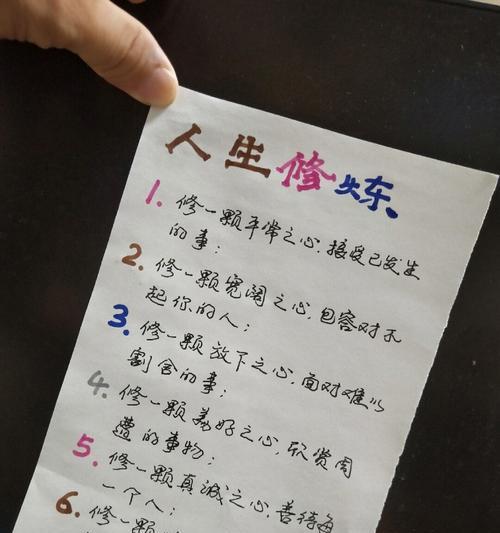 人生修炼
1. 修一颗平常之心,接受已发生
的事;
2. 修一颗宽阔之心,包容对不
起你的人;
3. 修一颗放下之心,面对难以
割舍的事;
4. 修一颗美好之心,欣赏周
遭的事物;
5. 修一颗真诚之心,善待每
一个人;
6. 修一颗